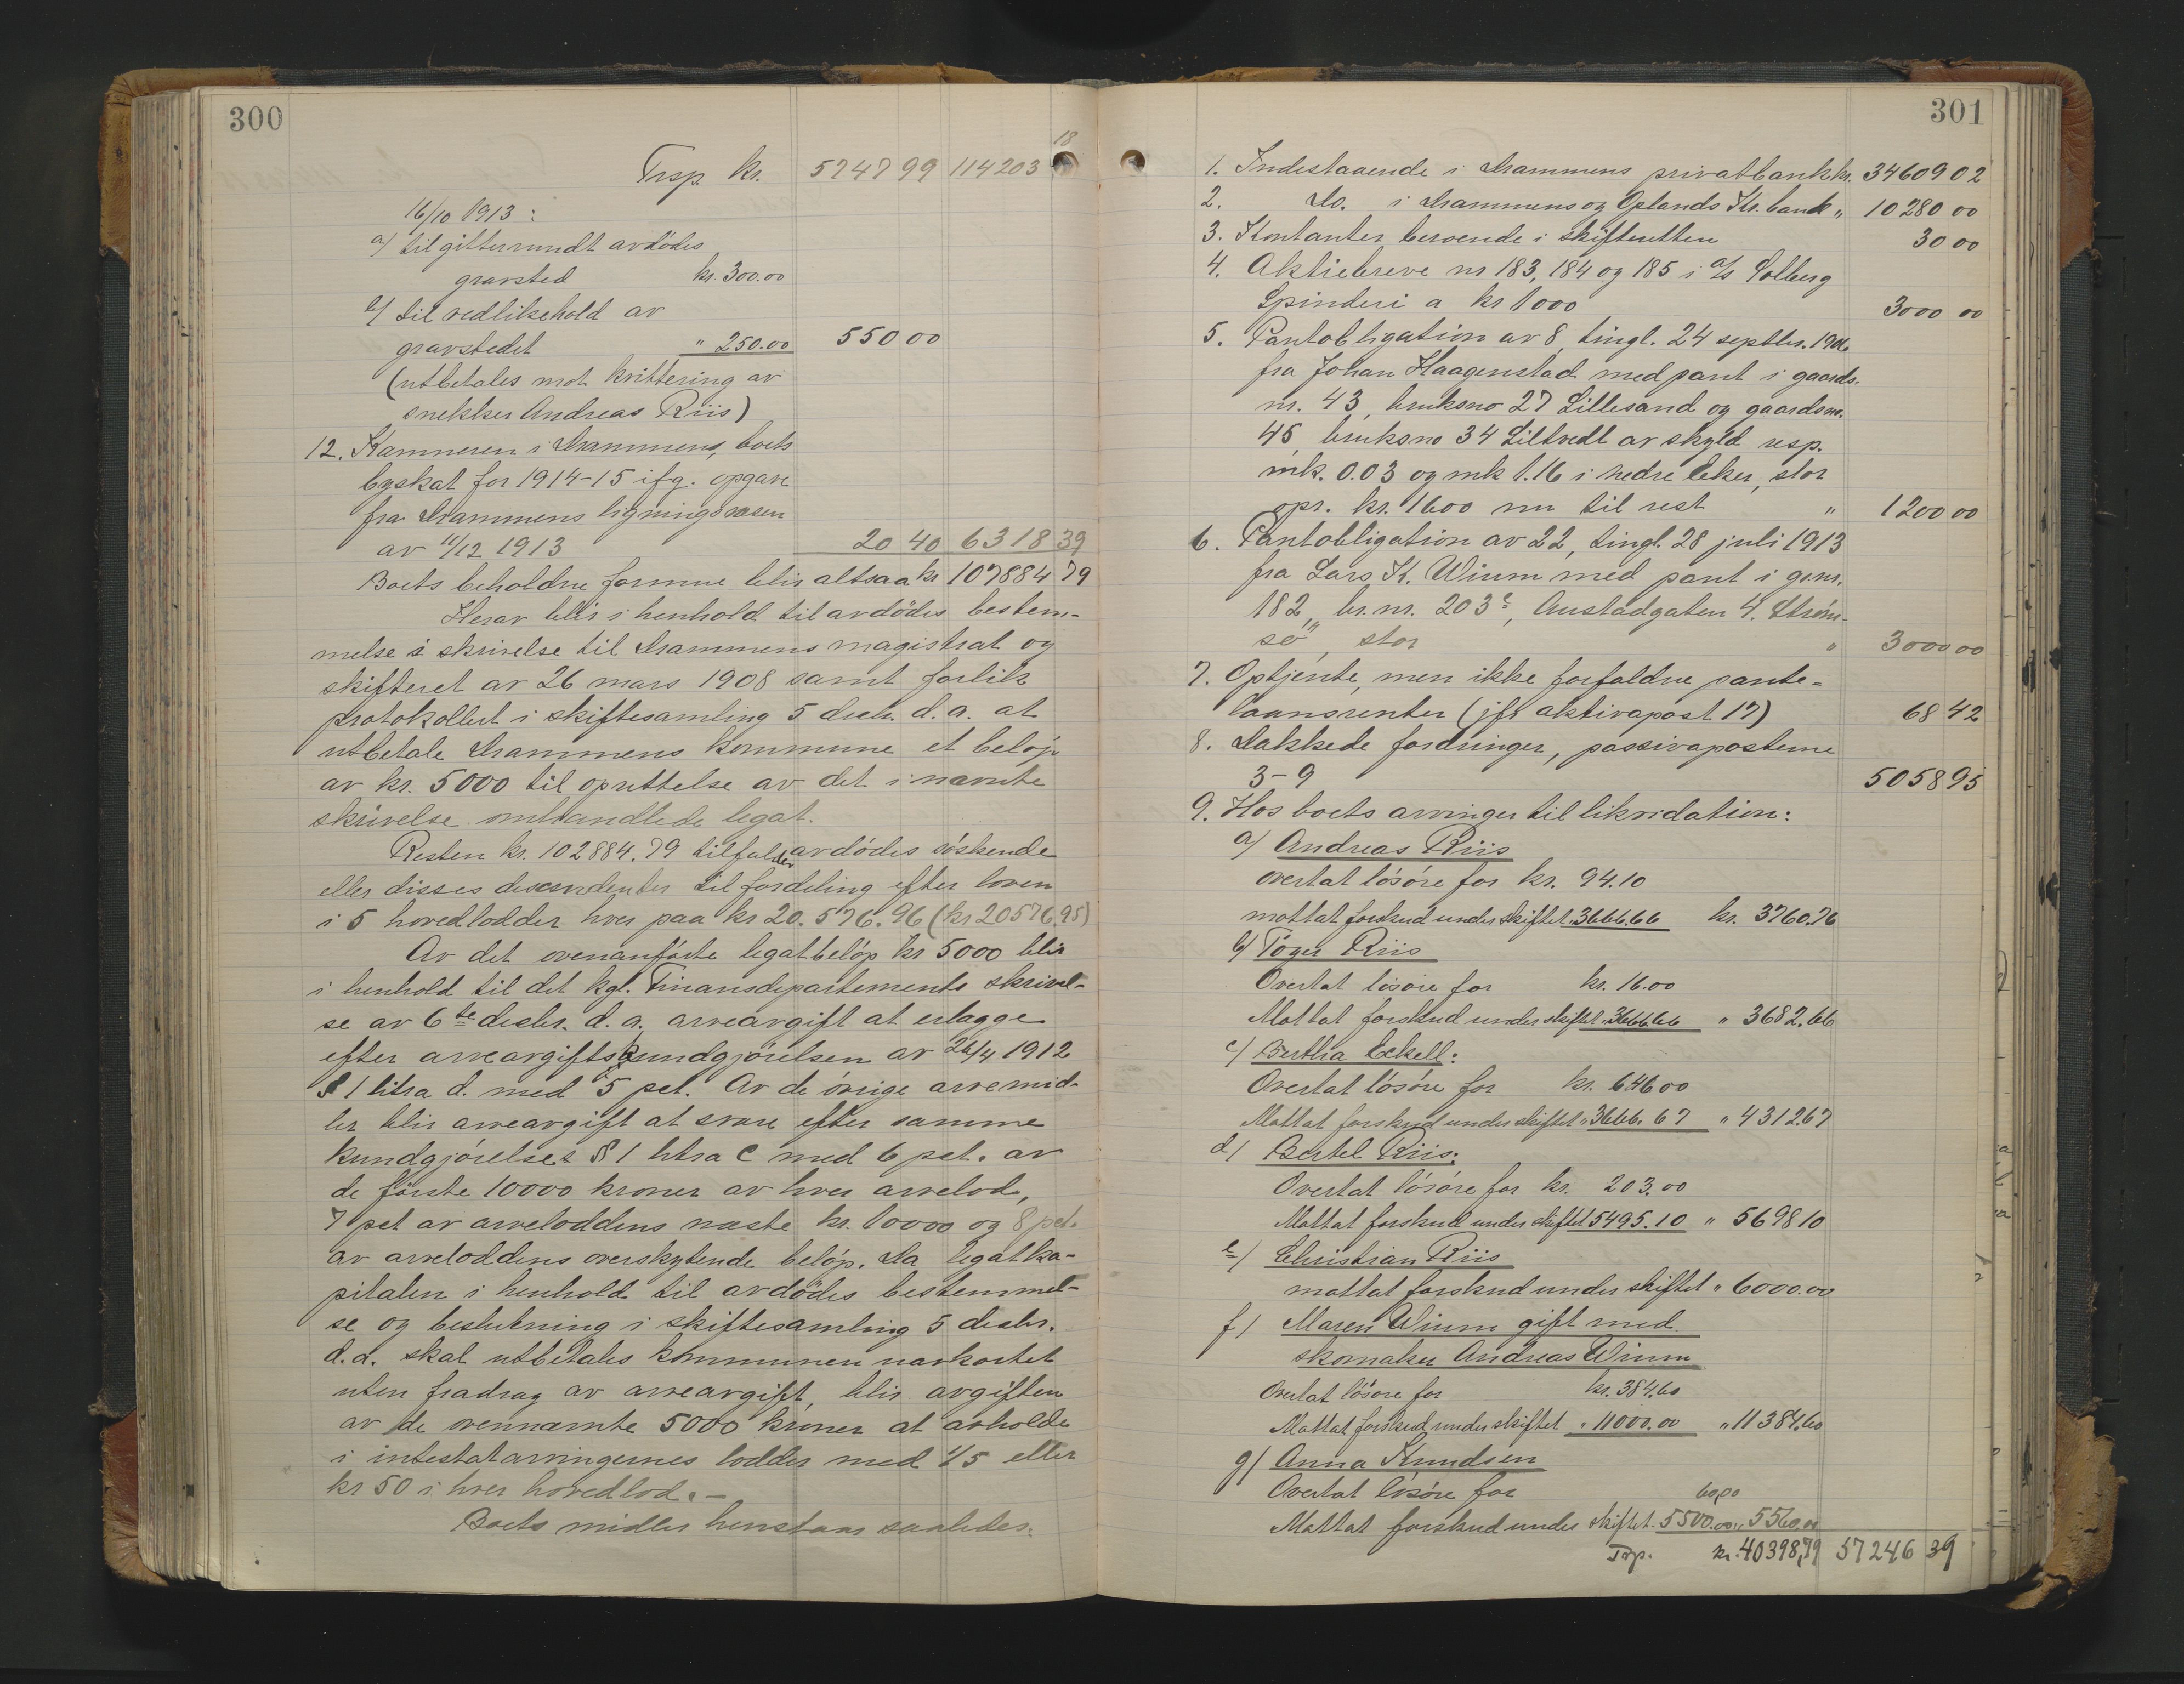 300
Trsp. kr. 5747 99 114203 18
16/10 1913:
a) til gitter rundt avdödes
gravsted kr. 300.00
b) til vedlikehold av
gravstedet " 250.00 550 00
(utbetales mot kvittering av
snekker Andreas Riis)
12. Kæmneren i Drammen, boets
byskat for 1914-15 ifg. opgave
fra Drammens ligningsvæsen
av 11/12 1913 20 40 6318 39
Boets beholdne formue blir altsaa kr 107884 79
Herav blir i henhold til avdödes bestem-
melse i skrivelse til Drammens magistrat og
skifteret av 26 mars 1908 samt forlik
protokollert i skiftesamling 5 decbr. d.a. at
utbetale Drammens kommune et belöp
av kr. 5000 til oprettelse av det i nævnte
skrivelse omhandlede legat.
Resten kr. 102884.79 tilfalder avdödes söskende
eller disses descendenter til fordeling efter loven
i 5 hovedlodder hver paa kr 20.576.96 (kr 20576.95)
Av det ovenanförte legatbelöp kr 5000 blir
i henhold til det kgl. Finansdepartements skrivel-
se av 6te decbr. d.a. arveavgift at erlægge
efter arveavgiftskundgjörelsen av 26/4 1912
§ 1 litra d. med 5 pct. Av de övrige arvemid-
ler blir arveavgift at svare efter samme
kundgjörelses § 1 litra C med 6 pct. av
de förste 10000 kroner av hver arvelod,
7 pct av arveloddens næste kr. 10000 og 8 pct.
av arveloddens overskytende belöp. Da legatka-
pitalen i henhold til avdödes bestemmel-
se og beslutning i skiftesamling 5 decbr.
d.a. skal utbetales kommunen uavkortet
uten fradrag av arveavgift, blir avgiften
av de ovennævnte 5000 kroner at avholde
i intestatarvingernes lodder med 1/5 eller
kr 50 i hver hovedlod.-
Boets midler henstaar saaledes:
301
1. Indestaaende i Drammens privatbank kr. 34609 02
2. Do. i Drammens og Oplands Kr.bank " 10280 00
3. Kontanter beroende i skifteretten 30 00
4. Aktiebreve nr 183, 184 og 185 i a/s Solberg
Spinderi a kr 1000 3000 00
5. Pantobligation av 8, tingl. 24 septbr. 1906
fra Johan Haagenstad med pant i gaards-
nr. 43, bruksno 27 Lillesand og gaardsnr.
45, bruksno 34 Lilltvedt av skyld resp.
mk. 0.03 og mk 1.16 i nedre Eker, stor
opr. kr. 1600 nu til rest " 1200 00
6. Pantobligation av 22, tingl. 28 juli 1913
fra Lars K. Winm med pant i gr.nr.
182, br.nr. 203c, Austadgaten 4. Ström-
sö", stor " 3000 00
7. Optjente, men ikke forfaldne pante-
laansrenter (jfr aktivapost 17) 68 42
8. Dækkede fordringer, passivaposterne
3-9 5058 95
9. Hos boets arvinger til likvidation:
a) Andreas Riis
overtat lösöre for kr. 94.10
mottat forskud under skiftet " 3666.66 kr. 3760.76
b) Töger Riis
Overtat lösöre for kr. 16.00
Mottat forskud under skiftet " 3666.66 " 3682.66
c) Bertha Eckell:
Overtat lösöre for kr. 646 00
Mottat forskud under skiftet " 3666.67 " 4312.67
d) Bertel Riis:
Overtat lösöre for kr. 203.00
Mottat forskud under skiftet 5495.10 " 5698 10
e) Christian Riis
mottat forskud under skiftet " 6000.00
f) Maren Winm gift med
skomaker Andreas Winm
Overtat lösöre for kr. 384.60
Mottat forskud under skiftet " 11000.00 " 11384.60
g) Anna Knudsen
Overtat lösöre for 60,00
Mottat forskud under skiftet 5500.00 " 5560,00
Trp. kr. 40398,79 57246 39